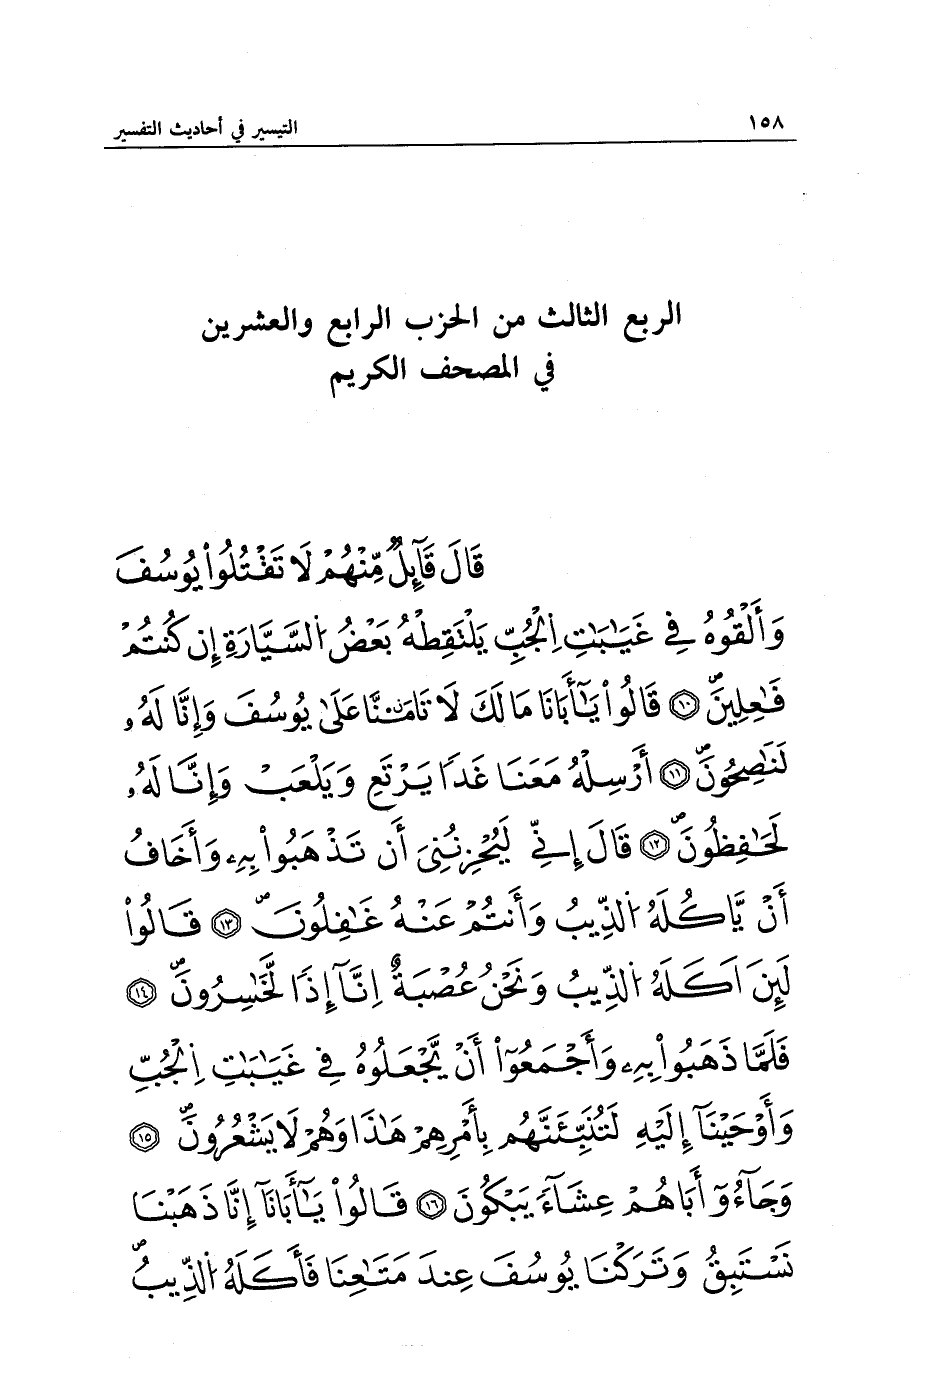 ١٥٨
التيسير في أحاديث التفسير
الربع الثالث من الحزب الرابع والعشرين
في المصحف الكريم
قَالَ قَآئِلٌ مِّنْهُمْ لَا تَقْتُلُواْ يُوسُفَ
وَأَلْقُوهُ فِي غَيَٰبَٰتِ اِ۬لْجُبِّ يَلْتَقِطْهُ بَعْضُ اُ۬لسَّيَّارَةِ إِن كُنتُمْ
فَٰعِلِينَۖ ۝١٠ قَالُواْ يَٰٓأَبَانَا مَا لَكَ لَا تَامَ۬نَّا عَلَىٰ يُوسُفَ وَإِنَّا لَهُۥ
لَنَٰصِحُونَۖ ۝١١ أَرْسِلْهُ مَعَنَا غَداٗ يَرْتَعِ وَيَلْعَبْ وَإِنَّا لَهُۥ
لَحَٰفِظُونَۖ ۝١٢ قَالَ إِنِّي لَيُحْزِنُنِيَ أَن تَذْهَبُواْ بِهِۦ وَأَخَافُ
أَنْ يَّاكُلَهُ اُ۬لذِّيبُ وَأَنتُمْ عَنْهُ غَٰفِلُونَۖ ۝١٣ قَالُواْ
لَئِنَ اَكَلَهُ اُ۬لذِّيبُ وَنَحْنُ عُصْبَةٌ اِنَّآ إِذاٗ لَّخَٰسِرُونَۖ ۝١٤
فَلَمَّا ذَهَبُواْ بِهِۦ وَأَجْمَعُوٓاْ أَنْ يَّجْعَلُوهُ فِي غَيَٰبَٰتِ اِ۬لْجُبِّ
وَأَوْحَيْنَآ إِلَيْهِ لَتُنَبِّئَنَّهُم بِأَمْرِهِمْ هَٰذَا وَهُمْ لَا يَشْعُرُونَۖ ۝١٥
وَجَآءُوٓ أَبَاهُمْ عِشَآءٗ يَبْكُونَ ۝١٦ قَالُواْ يَٰٓأَبَانَآ إِنَّا ذَهَبْنَا
نَسْتَبِقُ وَتَرَكْنَا يُوسُفَ عِندَ مَتَٰعِنَا فَأَكَلَهُ اُ۬لذِّيبُۖ